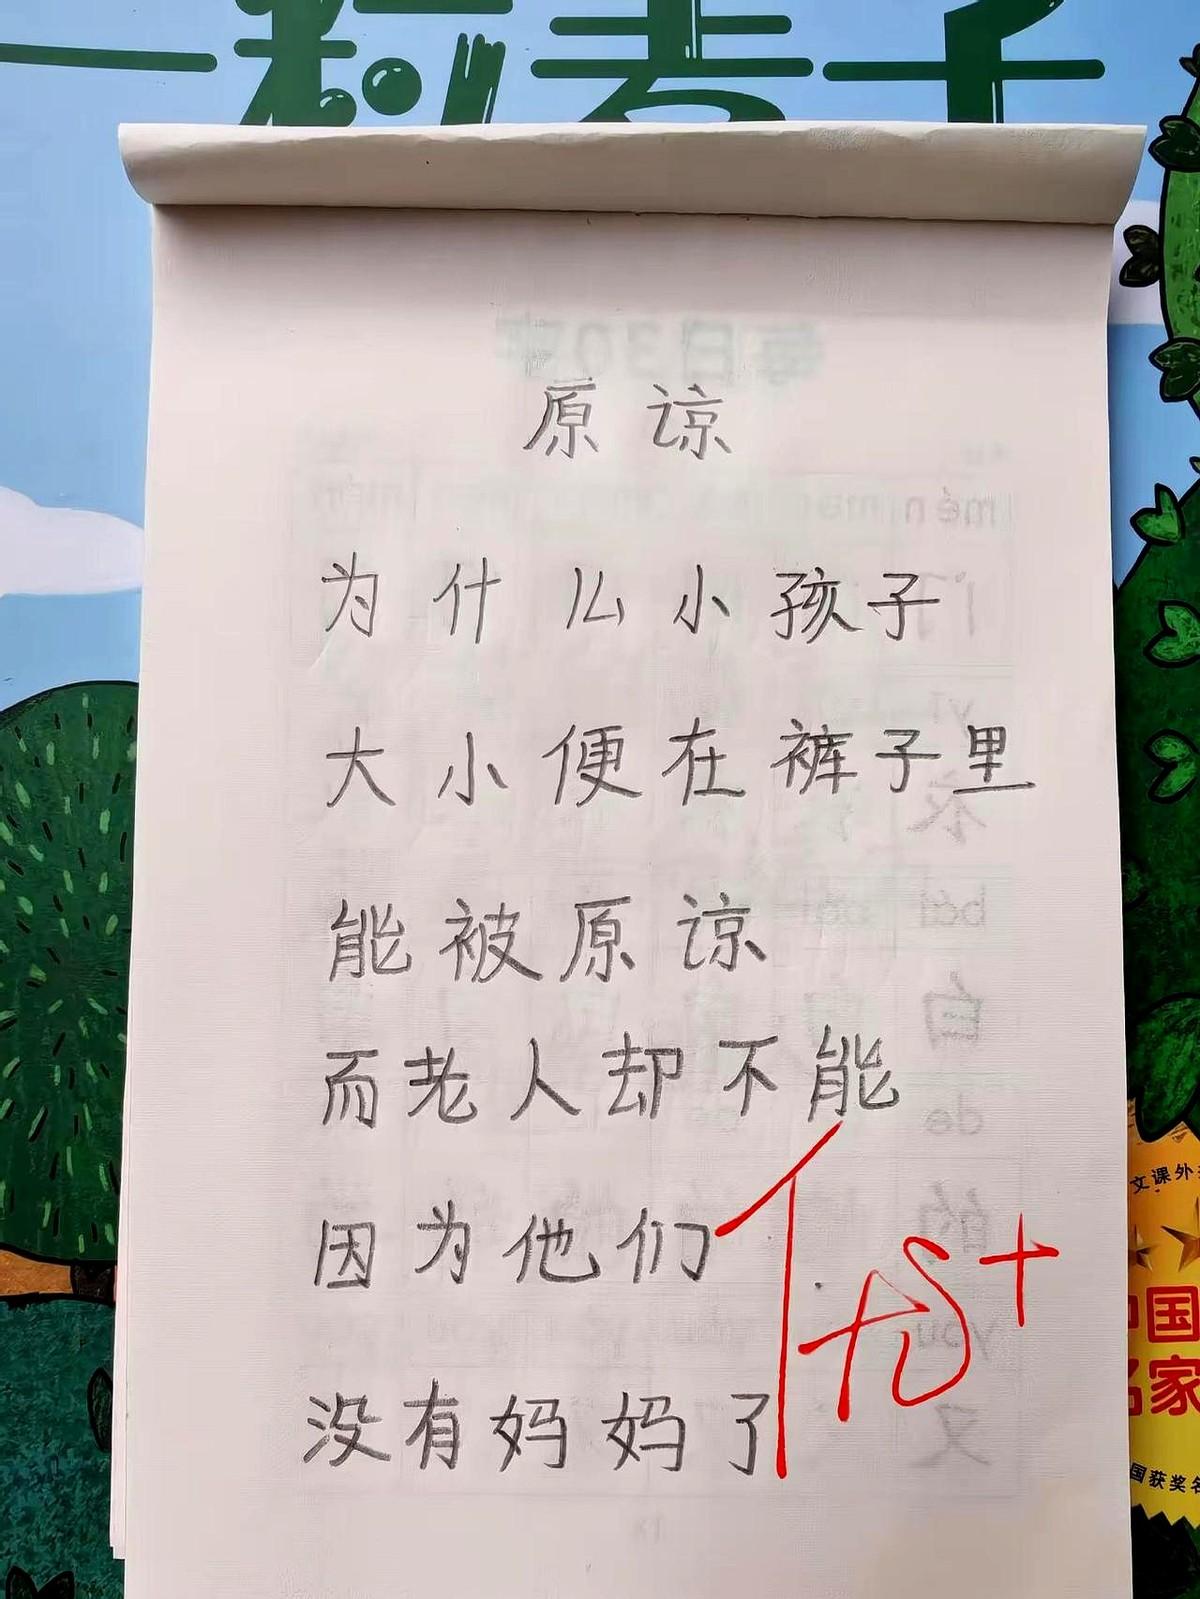 一粒麦子
原谅
为什么小孩子
大小便在裤子里
能被原谅
而老人却不能
因为他们
没有妈妈了
优+
文课外
中国
名家
国获奖名